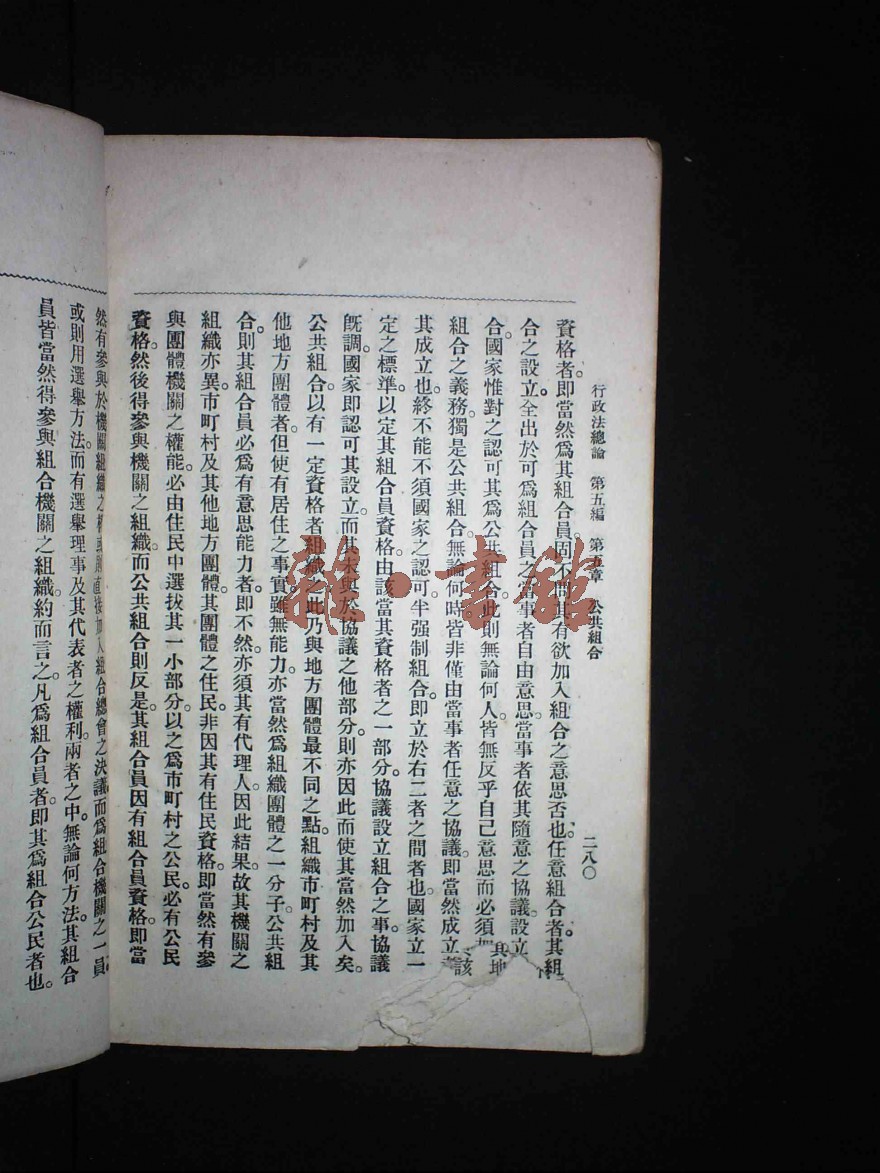 行政法總論　第五編　第五章　公共組合　二八〇
資格者。即當然爲其組合員。固不問其有欲加入組合之意思否也。任意組合者。其組
合之設立。全出於可爲組合員之當事者自由意思。當事者依其隨意之協議。設立
合。國家惟對之認可其爲公共組合。此則無論何人。皆無反乎自己意思而必須
組合之義務。獨是公共組合。無論何時。皆非僅由當事者任意之協議。即當然成立
其成立也。終不能不須國家之認可。半强制組合。即立於右二者之間者也。國家立一
定之標準。以定其組合員資格。由該當其資格者之一部分。協議設立組合之事。協議
旣調。國家即認可其設立。而其未與於協議之他部分。則亦因此而使其當然加入矣。
公共組合。以有一定資格者組織之。此乃與地方團體最不同之點。組織市町村及其
他地方團體者。但使有居住之事實。雖無能力。亦當然爲組織團體之一分子。公共組
合。則其組合員必爲有意思能力者。即不然。亦須其有代理人。因此結果。故其機關之
組織亦異。市町村及其他地方團體。其團體之住民。非因其有住民資格。即當然有參
與團體機關之權能。必由住民中選拔其一小部分。以之爲市町村之公民。必有公民
資格。然後得參與機關之組織。而公共組合則反是。其組合員因有組合員資格。即當
然有參與於機關組織之權。或則直接加入組合總會之決議。而爲組合機關之一員。
或則用選舉方法。而有選舉理事及其代表者之權利。兩者之中。無論何方法。其組合
員皆當然得參與組合機關之組織。約而言之。凡爲組合員者。即其爲組合公民者也。
龍·書館